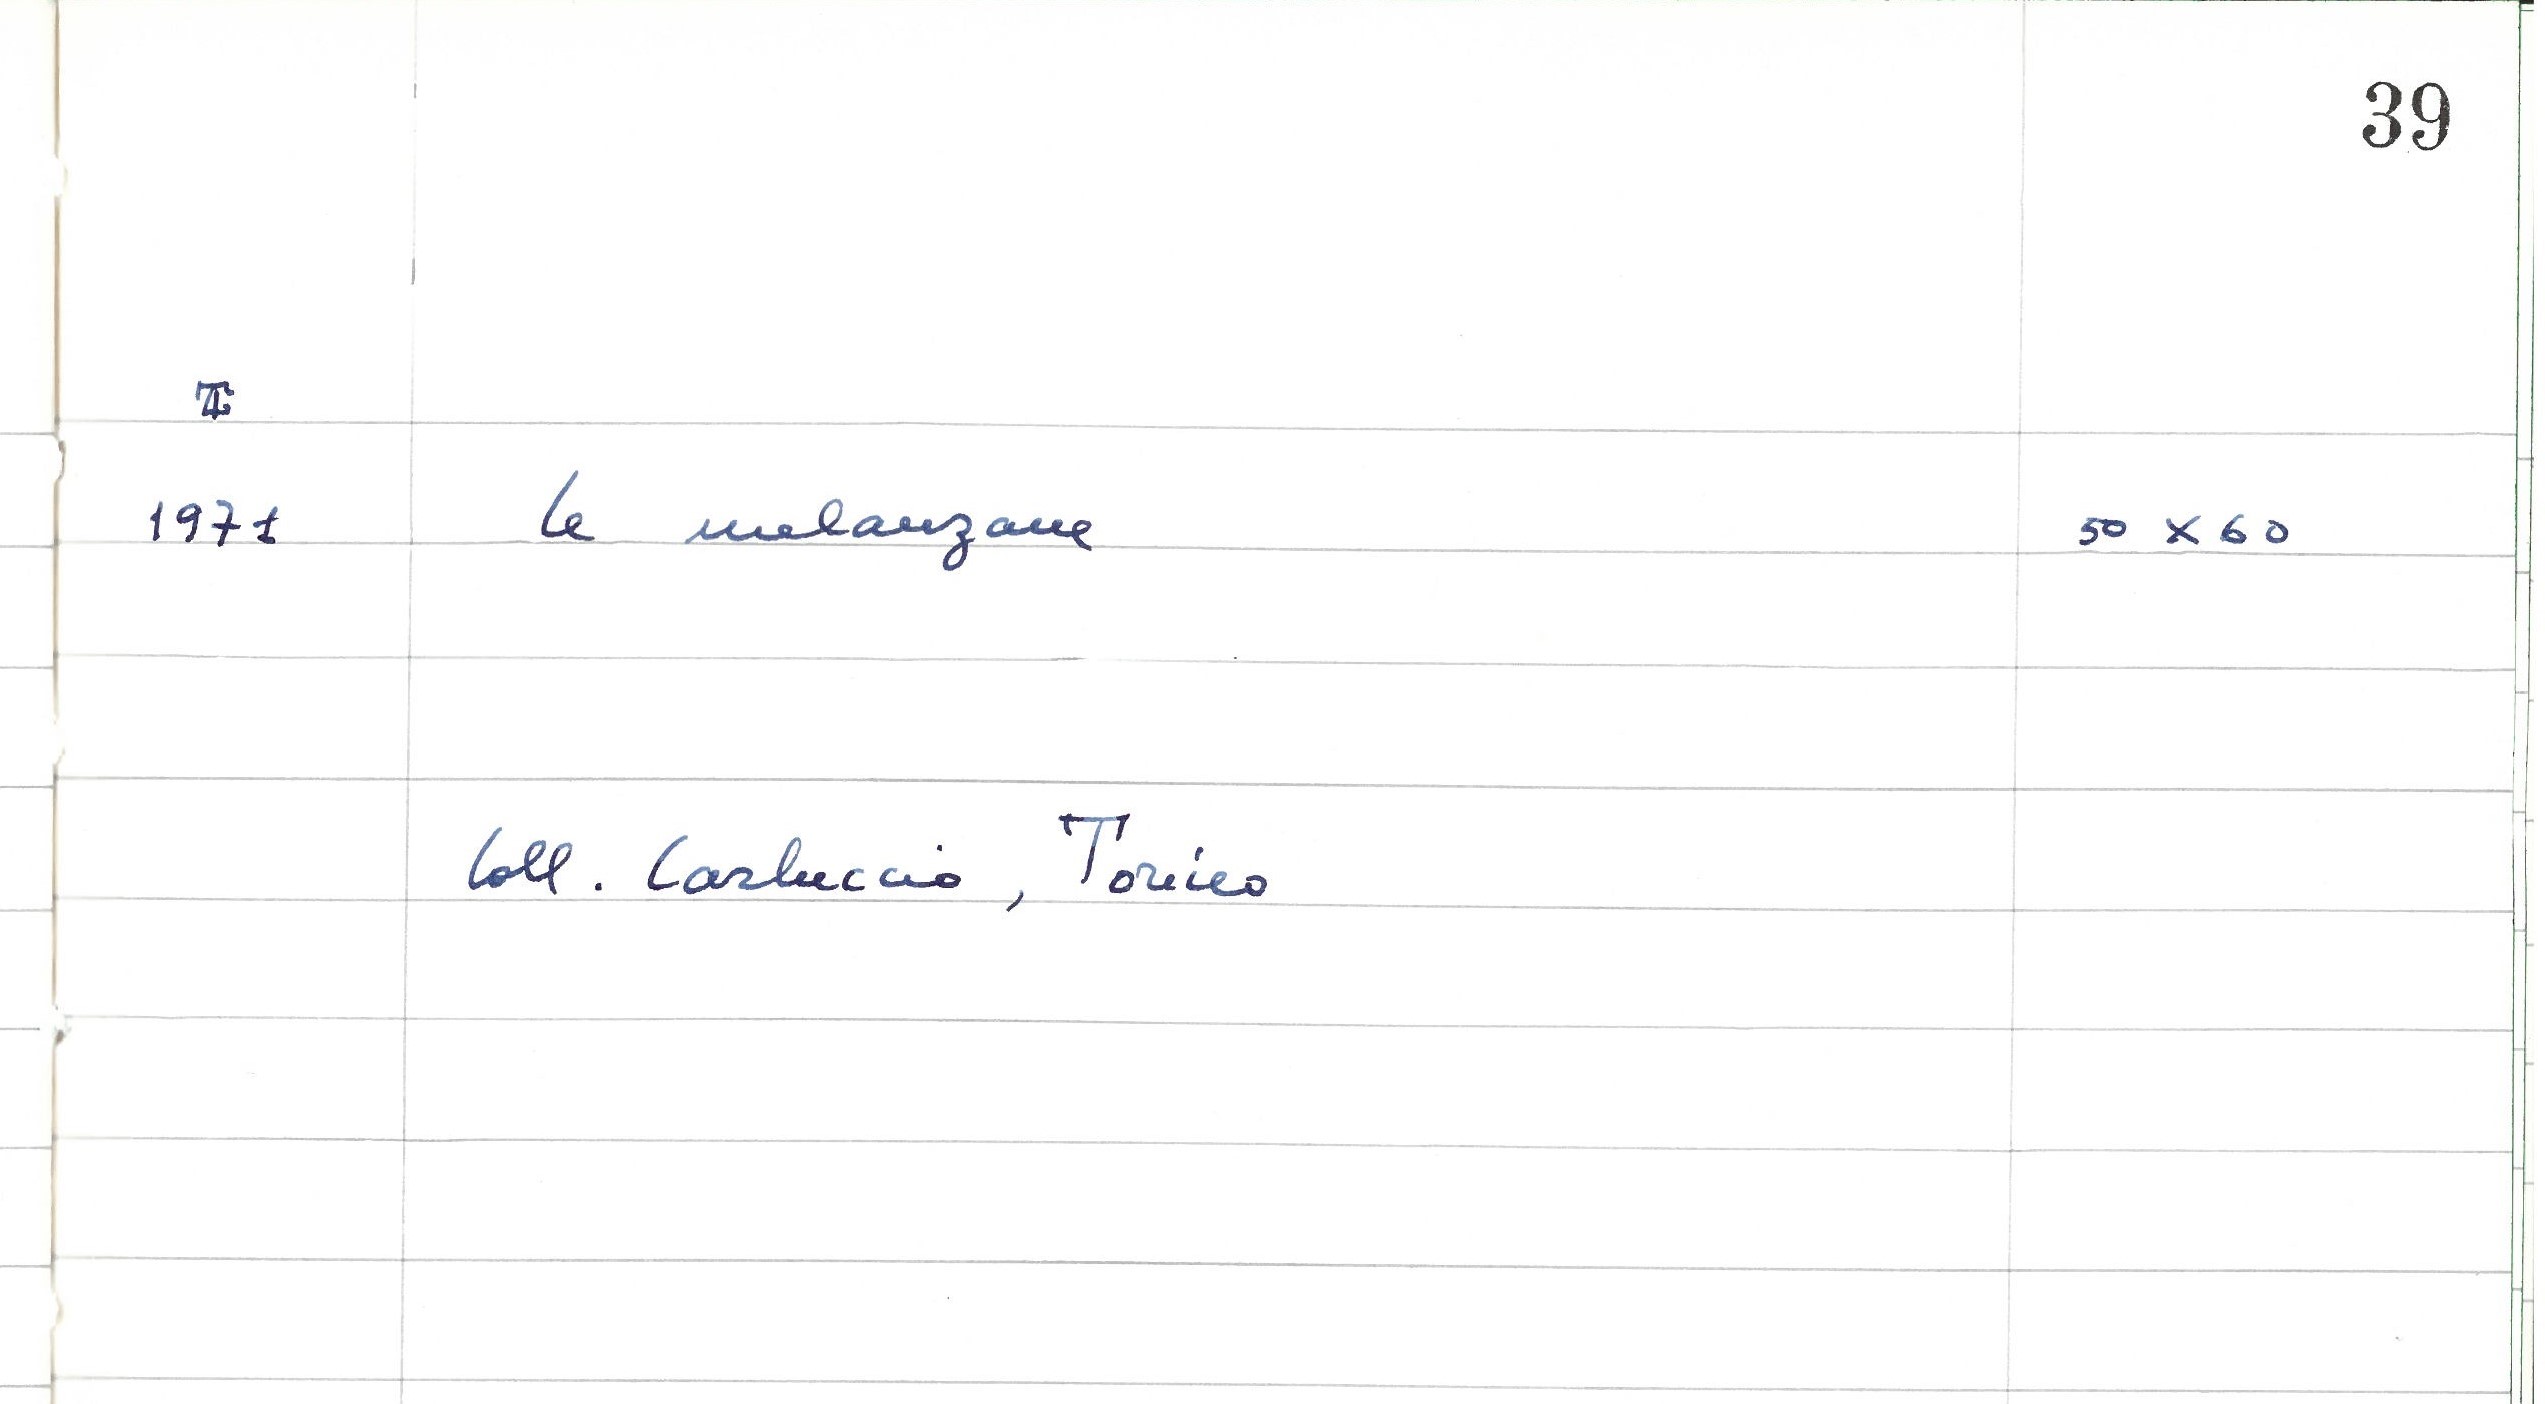 39
1971 Le melanzane 50 x 60
Coll. Carluccio, Torino